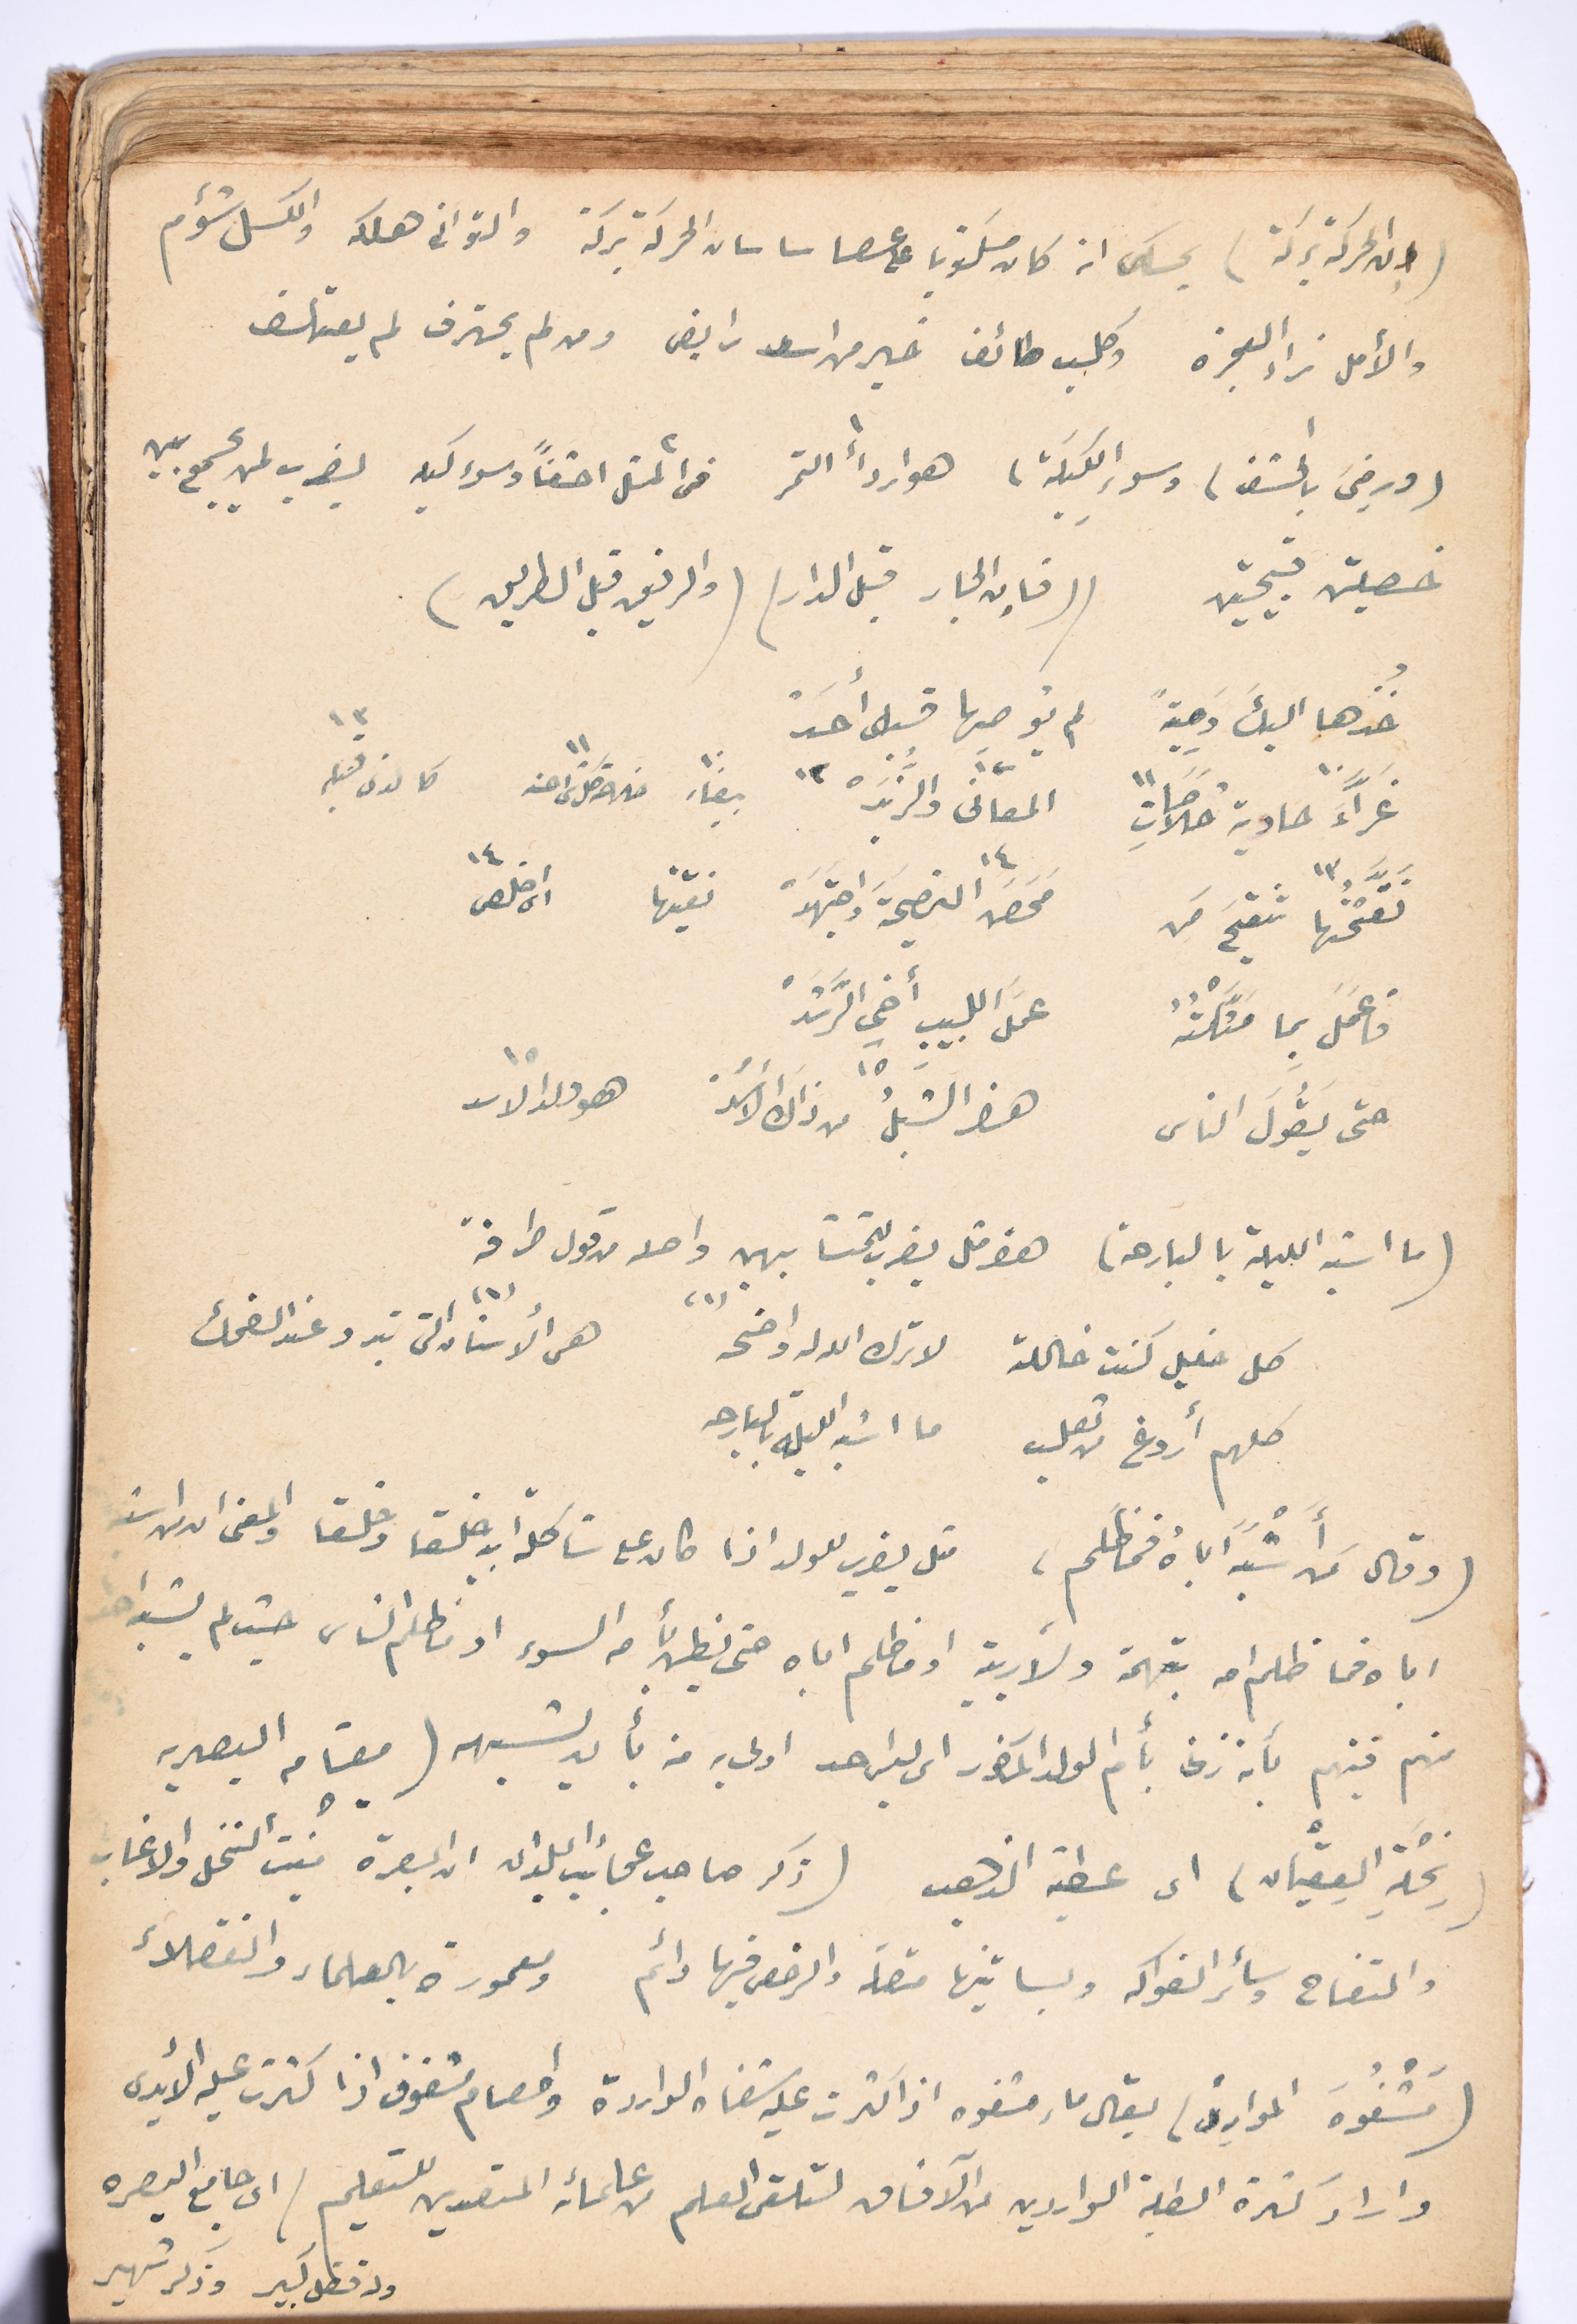 (إن الحركة بركة) يحكى انه كان مكتوبا على عصا ساسان الحركة بركة والتوانى هلكه والكسل شؤم
والأمل زاد العجزه وكلب طائف خير من اسد رابض ومن لم يحترف لم يعتلف
(ورضيَ بالحشف) وسوءِ الكيلة) هو اردأُ التمر فى المثل احشفاً وسوء كيله يضرب لمن يجمع بين
خصلتين قبيحتين ((فإن الجار قبل الدار) (والرفيق قبل الطريق)
خُذها اليكَ وَصِيةً لم يُوصِها قبلى أحَدْ
غَرَّاءَ ١٠ حاوية خلاصاتِ ١١ المعانى والزُّبَدْ ١٢ ١٠ بيضاءَ ١١ ١٢ كالذى قبله
نَقَّحْتُها ١٣ تنقيحَ مَن مَحَضَ ١٤ النصيحةَ واجتهدْ نقيتها اى اخلص ١٤
فاعمَل بما مَثَّلتُهُ عملَ اللبيبِ أخي الرَّشَدْ
حتى يقولَ الناس هذا الشبلُ ١٥ من ذاك الأسَدْ هو ولد الاسد ١٥
(ما اشبه الليلة بالبارحة) هو مثل يضرب للمتشابهين واصله من قول طرفة
كل خليل كنت خاللته لا ترك الله له واضحه (١) (١) هى الأسنان التى تبدو عند الضحك
كلهم أروغ من ثعلب ما اشبه الليلة بالبارحه
(وقال مَن أَشْبَهَ اباهُ فما ظَلَم) مثل يضرب للولد اذا كان على شاكلة ابيه خلقا وخلقا والمعنى ان من اشبه
اباه فما ظلم امه بتهمة ولا ريبة او ما ظلم اباه حتى يظن به السوء او ما ظلم الناس حيث لم يشبه احد
منهم فيتهم بأنه زنى بأم الولد المذكور اى ليس احد اولى به منه بأن يشبهه (مقامه البصريه
(نِحْلَةِ العِقْيان) اى عطية الذهب (ذكر صاحب عجائب البلدان ان البصرة منبت النخل والاعناب
والتفاح وسائر الفواكه وبساتينها متصلة والرخص فيها دائم ومعمورة بالعلماء والفضلاء
(مَشْفُوهَ المواردِ) يقال ماء مشفوه اذا كثرت عليه شفاه الواردة وطعام مشفوف اذا كثرت عليه الأيدى
واراد كثرة الطلبة الواردين من الآفاق لتلقى العلم من علمائه المتصدين للتعليم / اى جامع البصره
وله فضل كبير وذكر شهير